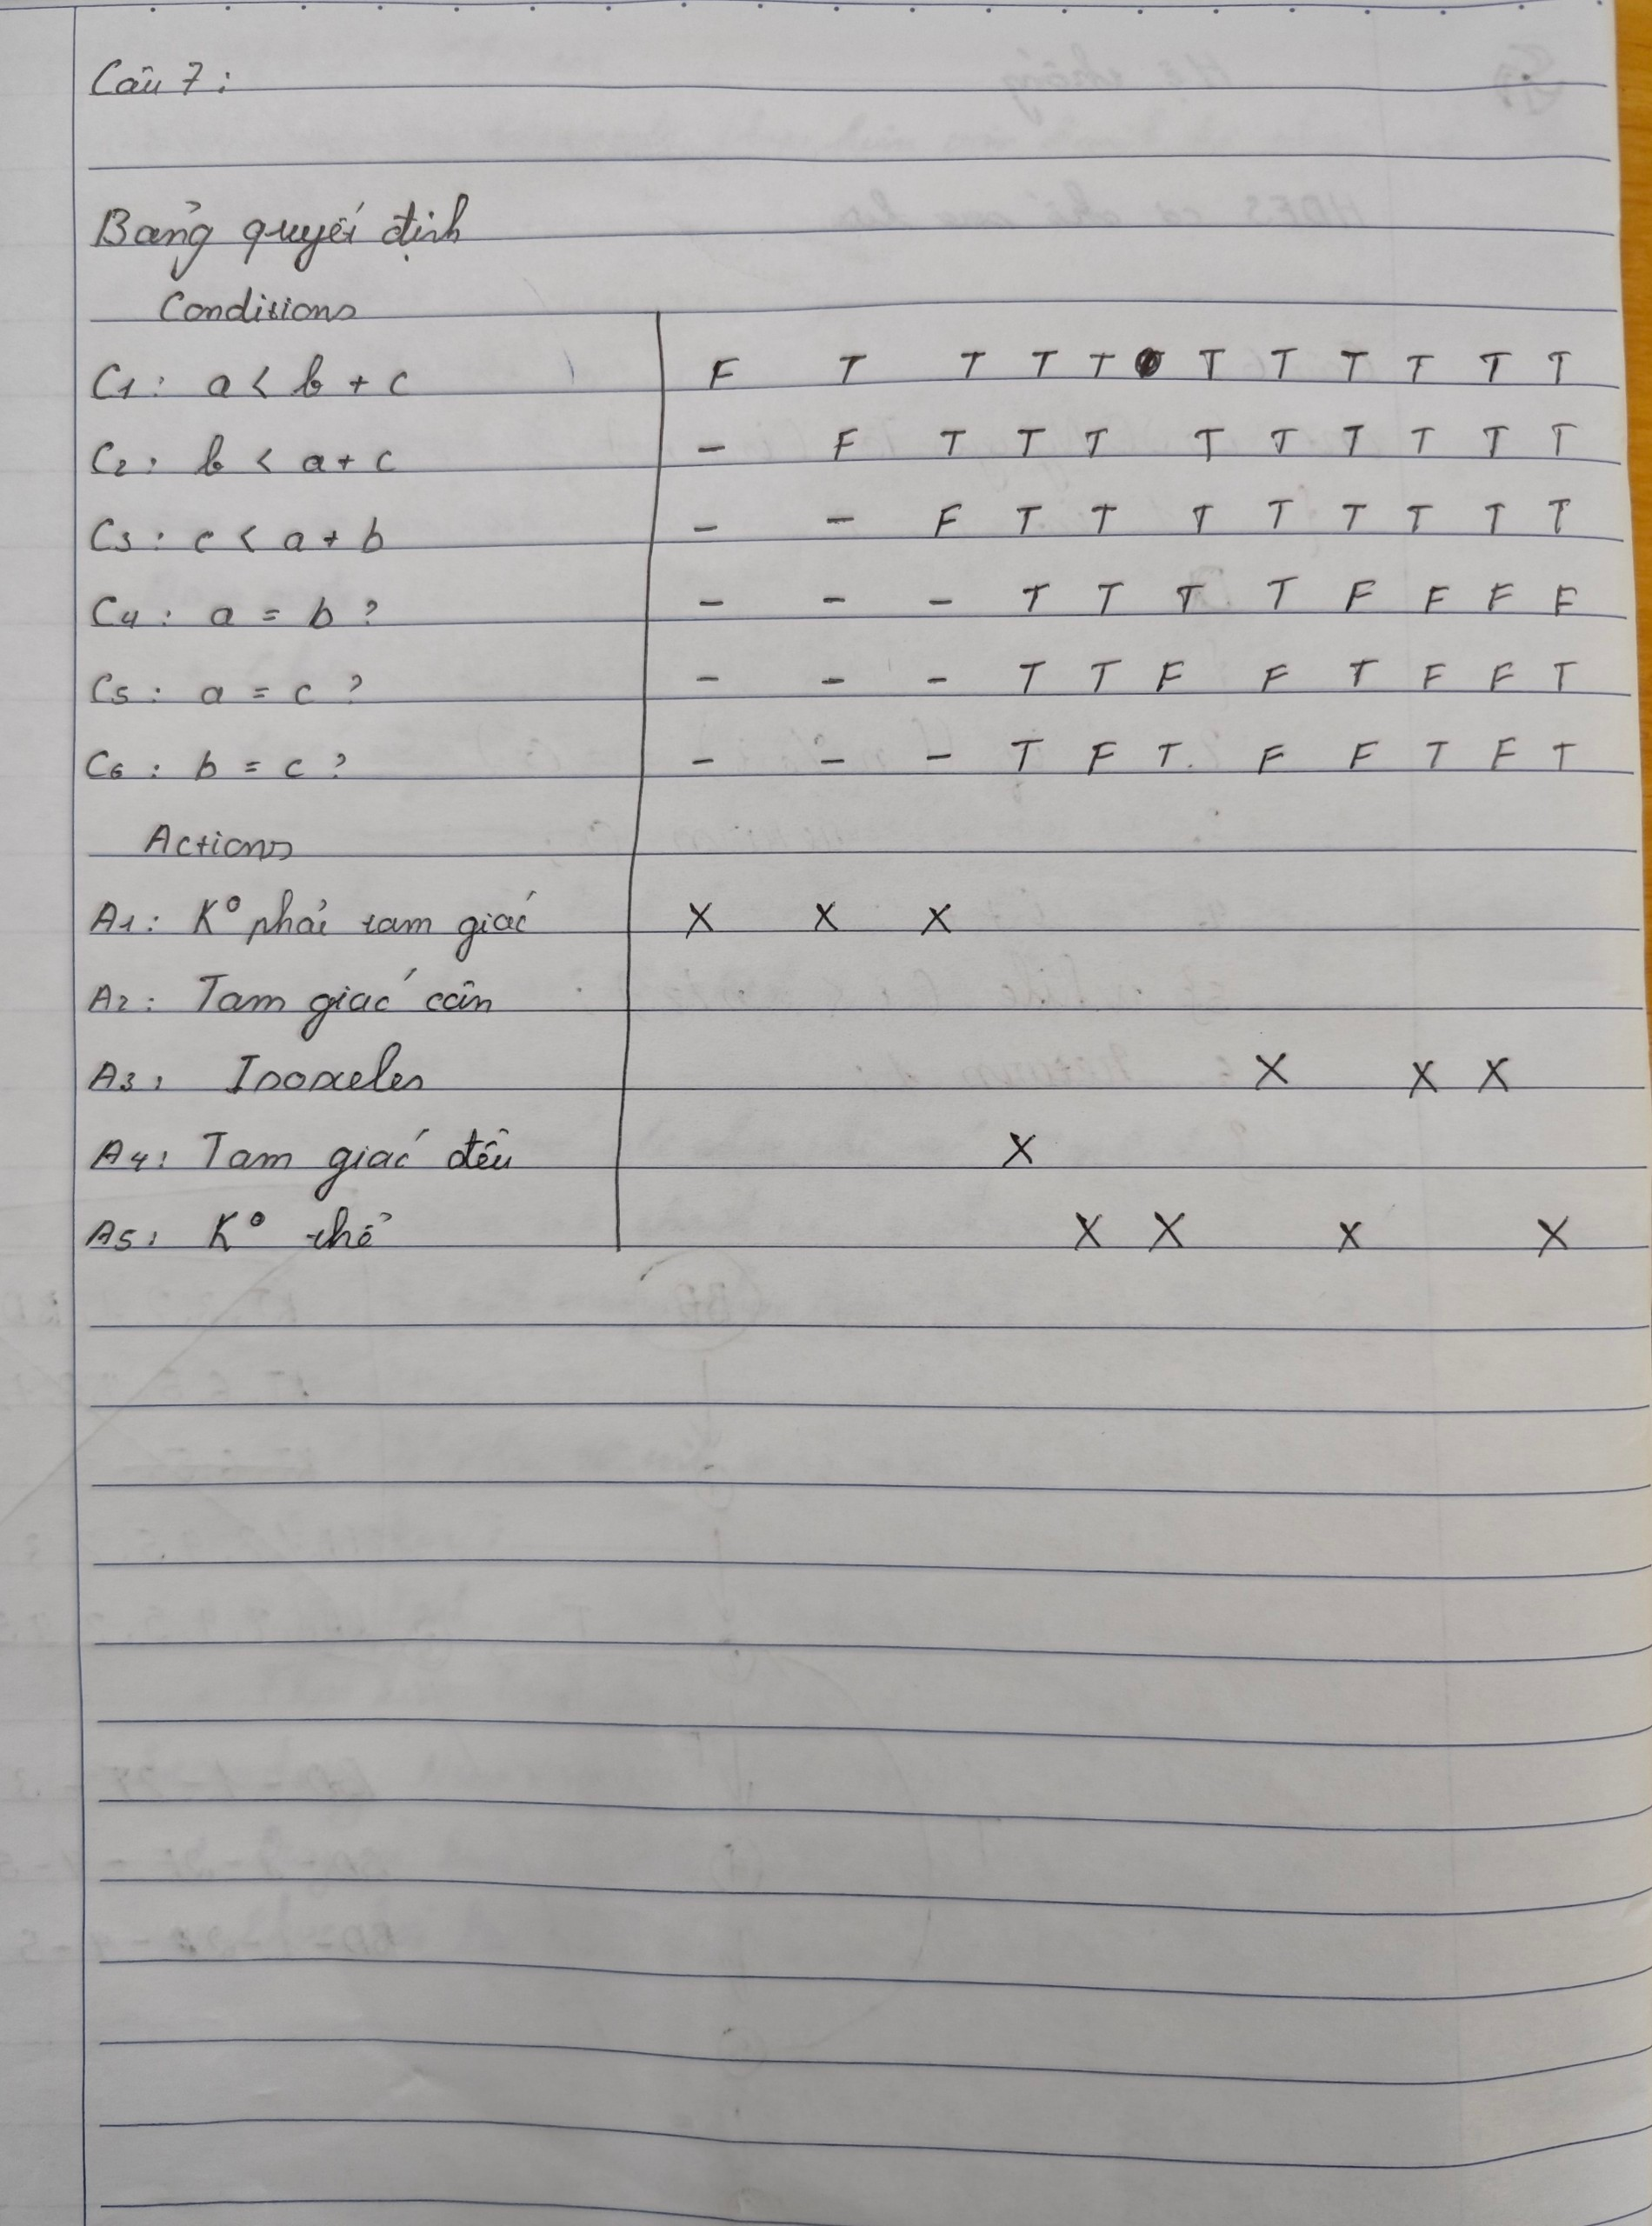 Câu 7:
Bảng quyết định
Conditions
C1: a < b + c F T T T T T T T T T T
C2: b < a + c - F T T T T T T T T T
C3: c < a + b - - F T T T T T T T T
C4: a = b ? - - - T T T T F F F F
C5: a = c ? - - - T T F F T F F T
C6: b = c ? - - - T F T. F F T F T
Actions
A1: K° phải tam giác X X X
A2: Tam giác cân
A3: X X X
A4: Tam giác đều X
A5: K° thể X X X X